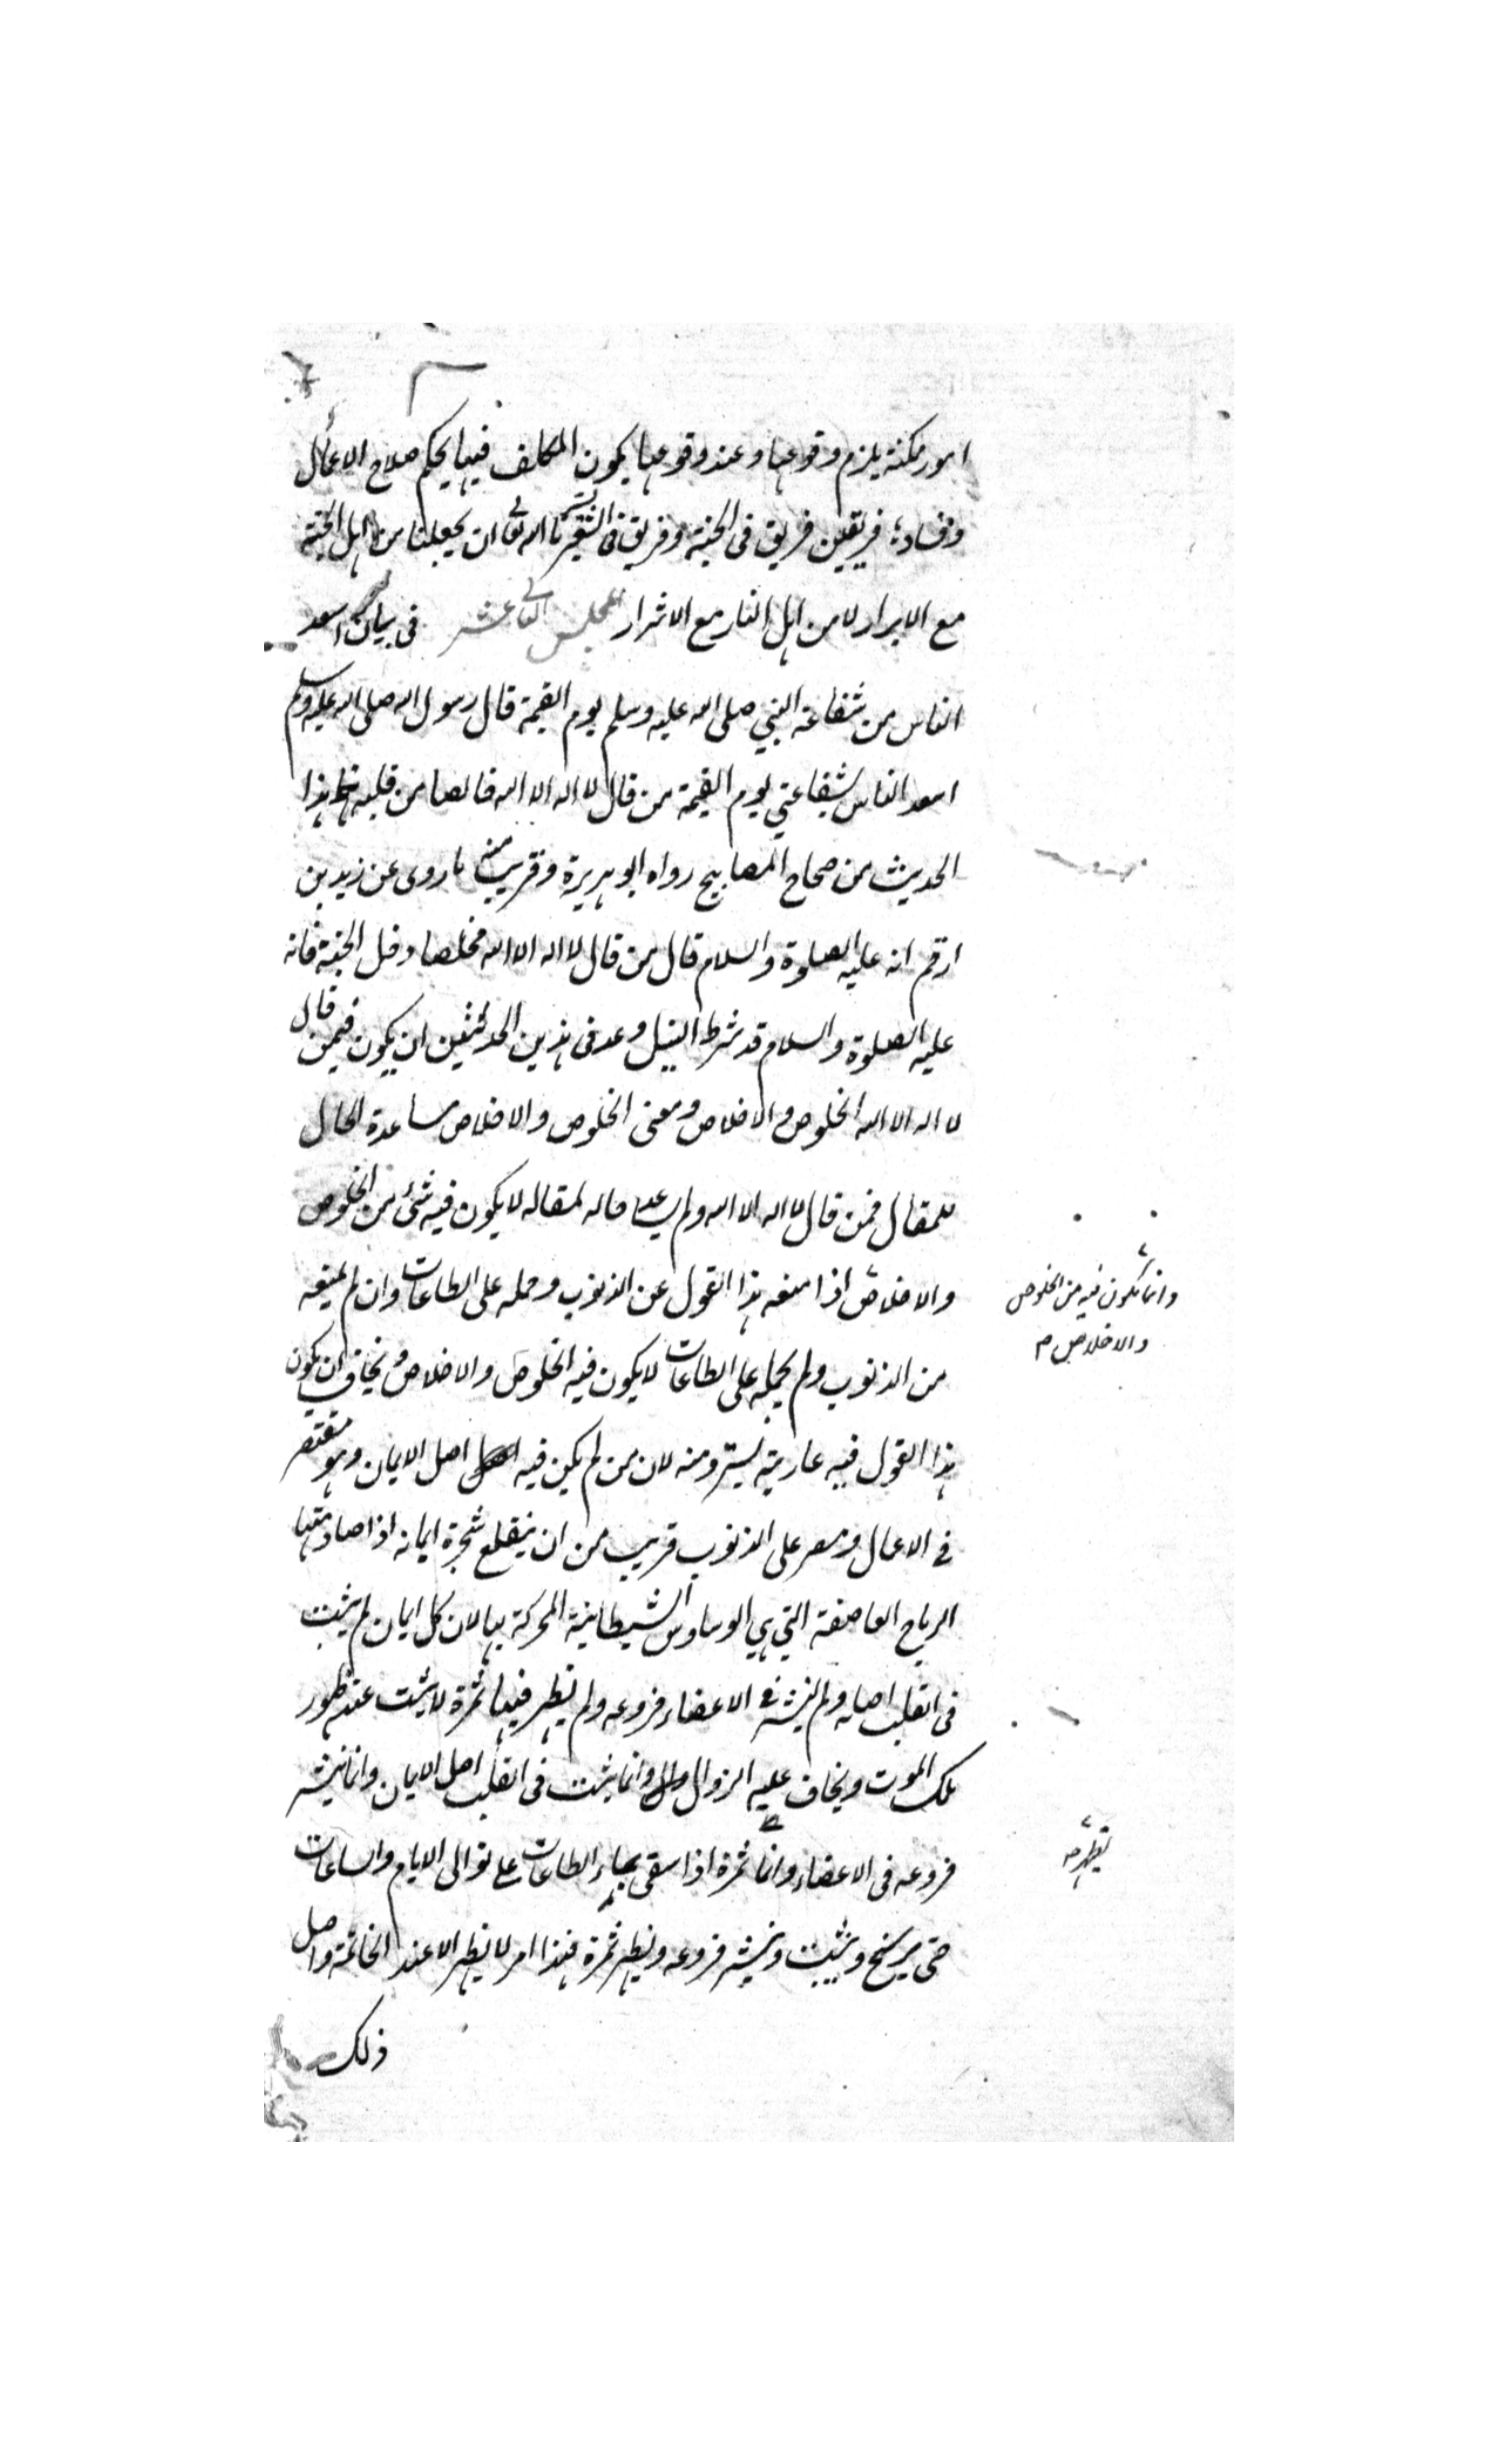 امور ممكنة يلزم وقوعها وعند وقوعها يكون المكلف فيها بحكم صلاح الاعمال
وفساده فريقين فريق فى الجنة وفريق فى السعير يسرنا الله تعالى ان يجعلنا من اهل الجنة
مع الابرار لا من اهل النار مع الاشرار المجلس عشر فى بيان اسعد
الناس من شفاعة النبي صلى الله عليه وسلم يوم القيمة قال رسول الله صلى الله عليه وسلم
اسعد الناس بشفاعتي يوم القيمة من قال لا اله الا الله خالصا من قلبه هذا
الحديث من صحاح المصابيح رواه ابو هريرة وقريب منه ما روى عن زيد بن
ارقم انه عليه الصلوة والسلام قال من قال لا اله الا الله مخلصا دخل الجنة فانه
عليه الصلوة والسلام قد شرط لنيل وعد فى هذين الحديثين ان يكون فيمن قال
لا اله الا الله الخلوص والاخلاص ومعنى الخلوص والاخلاص مساعدة الحال
للمقال فمن قال لا اله الا الله ولم يساعد حاله لمقاله لا يكون فيه شئ من الخلوص
والاخلاص اذا منعه هذا القول عن الذنوب وحمله على الطاعات وان لم يمنعه
وانما يكون فيه من الخلوص
والاخلاص م
من الذنوب ولم يحمله على الطاعات لا يكون فيه الخلوص والاخلاص ويخاف ان يكون
هذا القول فيه عارية يسترد منه لان من لم يكن فيه اصل الايمان وهو مقتصر
فى الاعمال ومصر على الذنوب قريب من ان ينقلع شجرة ايمانه اذا صادمتها
الرياح العاصفة التي هي الوساوس الشيطانية المحركة بها لان كل ايمان لم يثبت
فى القلب اصله ولم ينتشر فى الاعضاء فروعه ولم يظهر فيها ثمرة لا يثبت عند ظهور
ملك الموت ويخاف عليه الزوال وانما يثبت فى القلب اصل الايمان وانما ينتشر
فروعه فى الاعضاء وانما ثمرة اذا سقى بماء الطاعات على توالى الايام والساعات
يظهر صح
حتى يرسخ ويثبت وينتشر فروعه ويظهر ثمرة فهذا امر لا يظهر الا عند الخاتمة واصل
ذلك